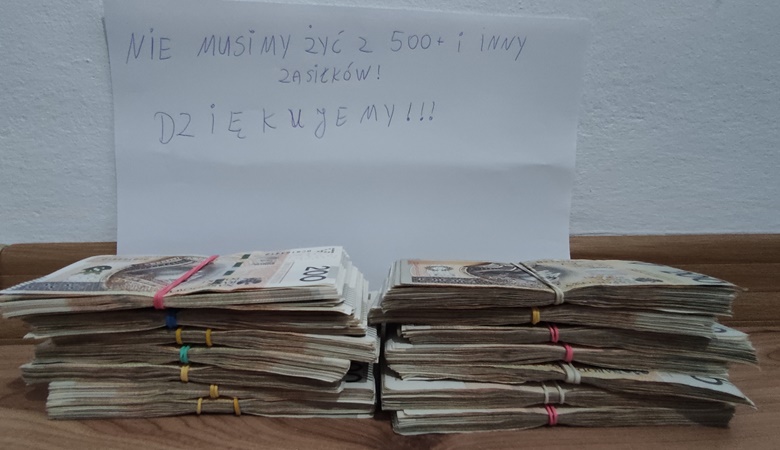 NIE MUSIMY ŻYĆ Z 500+ i INNY
ZASIŁKÓW!
DZIĘKUJEMY!!!
200